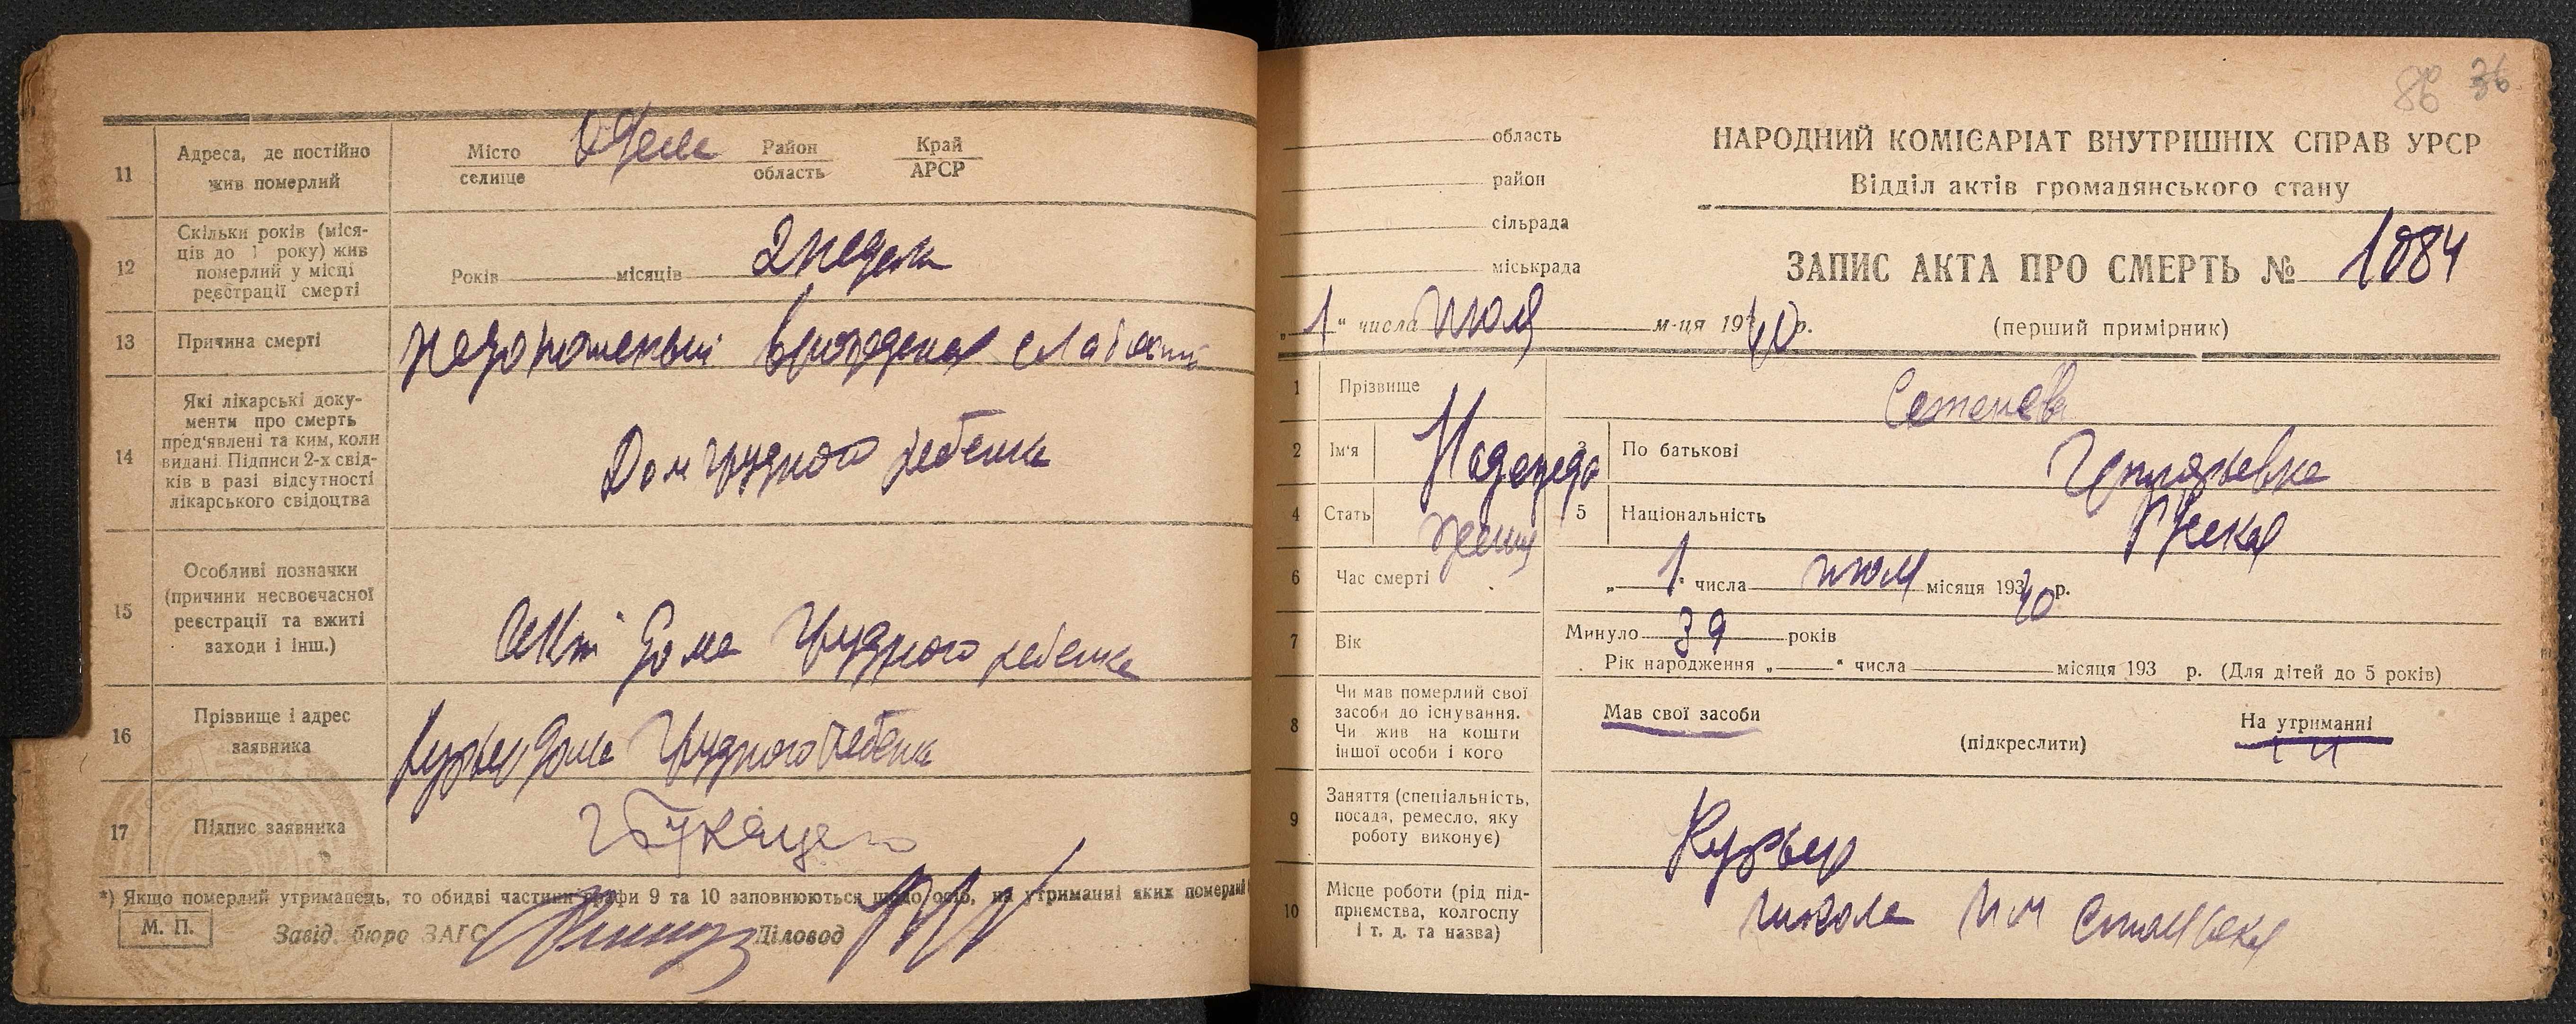 11
Адреса, де постійно
жив померлий
Місто
селище
Район
область
Край
АРСР
12
Скільки років (міся-
ців до 1 року) жив
померлий у місці
реєстрації смерті
Років місяців 2 недели
13
Причина смерті
недоношенный врожденая слабость
14
Які лікарські доку-
менти про смерть
пред'явлені та ким, коли
видані. Підписи 2-х свід-
ків в разі відсутності
лікарського свідоцтва
Дом грудного ребенка
15
Особливі позначки
(причини несвоєчасної
реєстрації та вжиті
заходи і інш.)
Акт Дома грудного ребенка
16
Прізвище і адрес
заявника
курьер дома грудного ребенка
17
Підпис заявника
*) Якщо померлий утриманець, то обидві частини графи 9 та 10 заповнюються щодо осіб, на утриманні яких померлий
М. П.
Завід. бюро ЗАГС
Діловод
86 36
область
район
сільрада
міськрада
НАРОДНИЙ КОМІСАРІАТ ВНУТРІШНІХ СПРАВ УРСР
Відділ актів громадянського стану
ЗАПИС АКТА ПРО СМЕРТЬ № 1084
„ 1 “ числа июля м-ця 1940 р.
(перший примірник)
1
Прізвище
2
Ім'я
Надежда
3
По батькові
4
Стать
женщ
5
Національність
Руская
6
Час смерті
„ 1 “ числа июля місяця 1940 р.
7
Вік
Минуло 39 років
Рік народження „ “ числа місяця 193 р. (Для дітей до 5 років)
8
Чи мав померлий свої
засоби до існування.
Чи жив на кошти
іншої особи і кого
Мав свої засоби
(підкреслити)
На утриманні
9
Заняття (спеціальність,
посада, ремесло, яку
роботу виконує)
Курьер
10
Місце роботи (рід під-
приємства, колгоспу
і т. д. та назва)
школа им